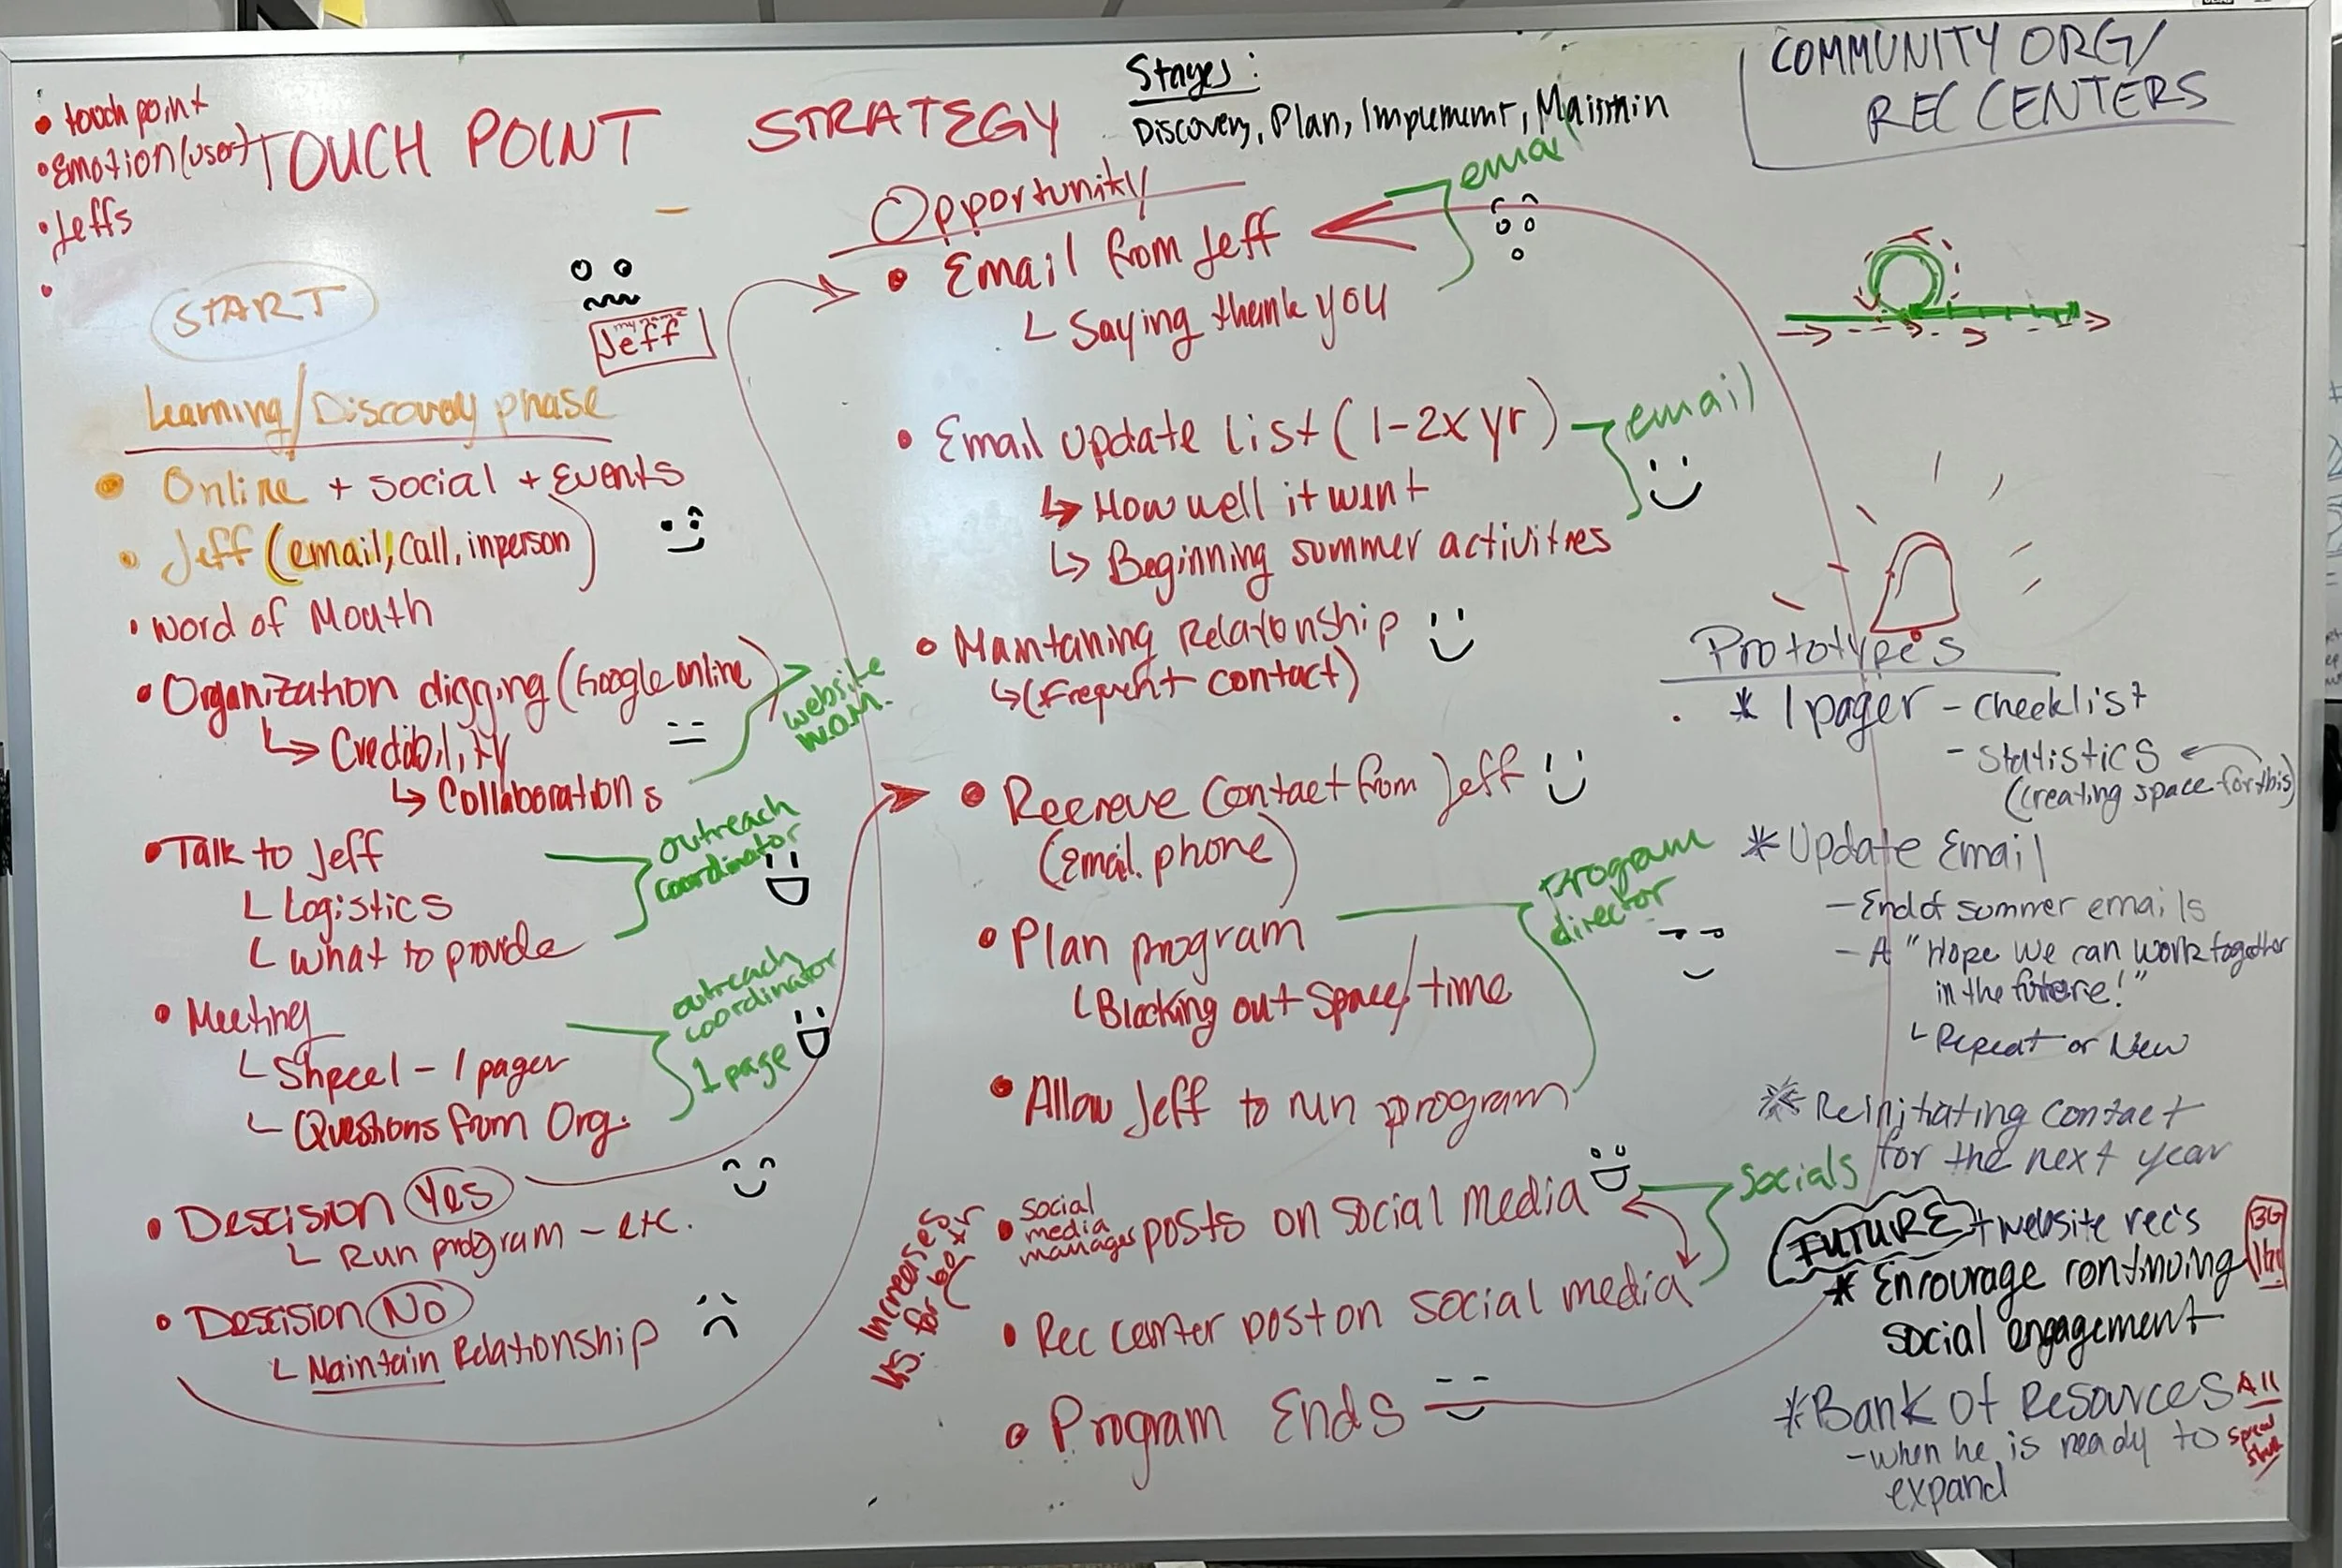 • touch point
• Emotion (user)
• Jeffs
•
TOUCH POINT STRATEGY
Stages:
Discovery, Plan, Implememt, Maintain
COMMUNITY ORG/
REC CENTERS
START
my name
Jeff
Learning/Discovery phase
• Online + Social + Events
• Jeff (email, Call, inperson)
• Word of Mouth
• Organization digging (Google online)
↳ Credibility
↳ Collaborations
website
W.O.M.
• Talk to Jeff
└ Logistics
└ What to provide
outreach
coordinator
• Meeting
└ Shpeel - 1 pager
└ Questions from Org.
outreach
coordinator
1 page
• Descision Yes
└ Run program - etc.
• Descision No
└ Maintain Relationship
Opportunity
• Email from Jeff
└ Saying thank you
email
• Email Update List (1-2x yr)
↳ How well it went
↳ Beginning summer activities
email
• Mantaning Relationship
↳ (Frequent contact)
• Recreve Contact from Jeff
(Email. phone)
• Plan program
└ Blocking out Space/time
program
director
• Allow Jeff to run program
• social
media
manager posts on social media
• Rec center post on social media
socials
Increases
for
• Program Ends
Prototypes
* 1 pager - Checklist
- Statistics
(creating space for this)
* Update Email
- End of summer emails
- A "Hope We can work together
in the future!"
└ Repeat or New
* Reinitiating contact
for the next year
FUTURE + website rec's
* Encourage continuing
social engagement
* Bank of Resources All
- when he is ready to
expand